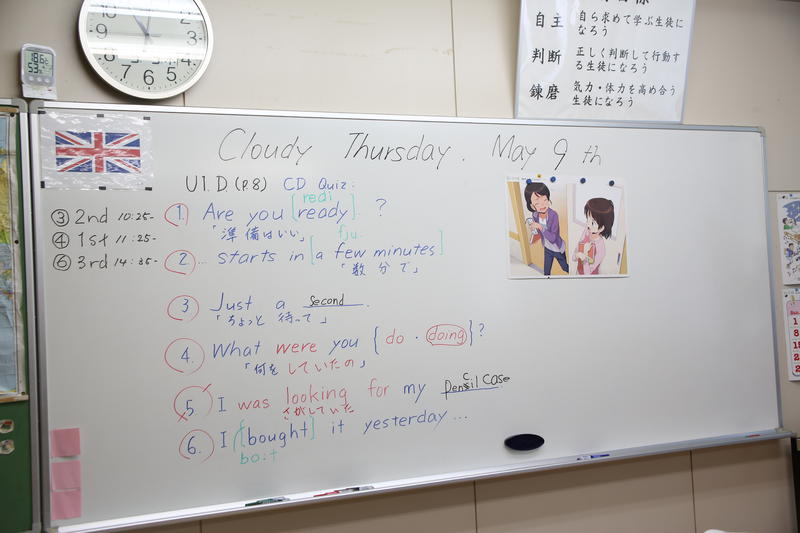 自主 自ら求めて学ぶ生徒になろう
判断 正しく判断して行動する生徒になろう
錬磨 気力・体力を高め合う生徒になろう
Cloudy Thursday. May 9 th
U1. D (P.8) CD Quiz:
③ 2nd 10:25-
④ 1st 11:25-
⑥ 3rd 14:35-
redi
1. Are you [ready] ?
「準備はいい」
fju:
2. ... starts in [a few minutes]
「数分で」
3 Just a second.
「ちょっと 待って」
4. What were you { do · doing }?
「何を していたの」
5 I was looking for my pencil case
さがしていた
6. I [bought] it yesterday...
bo:t